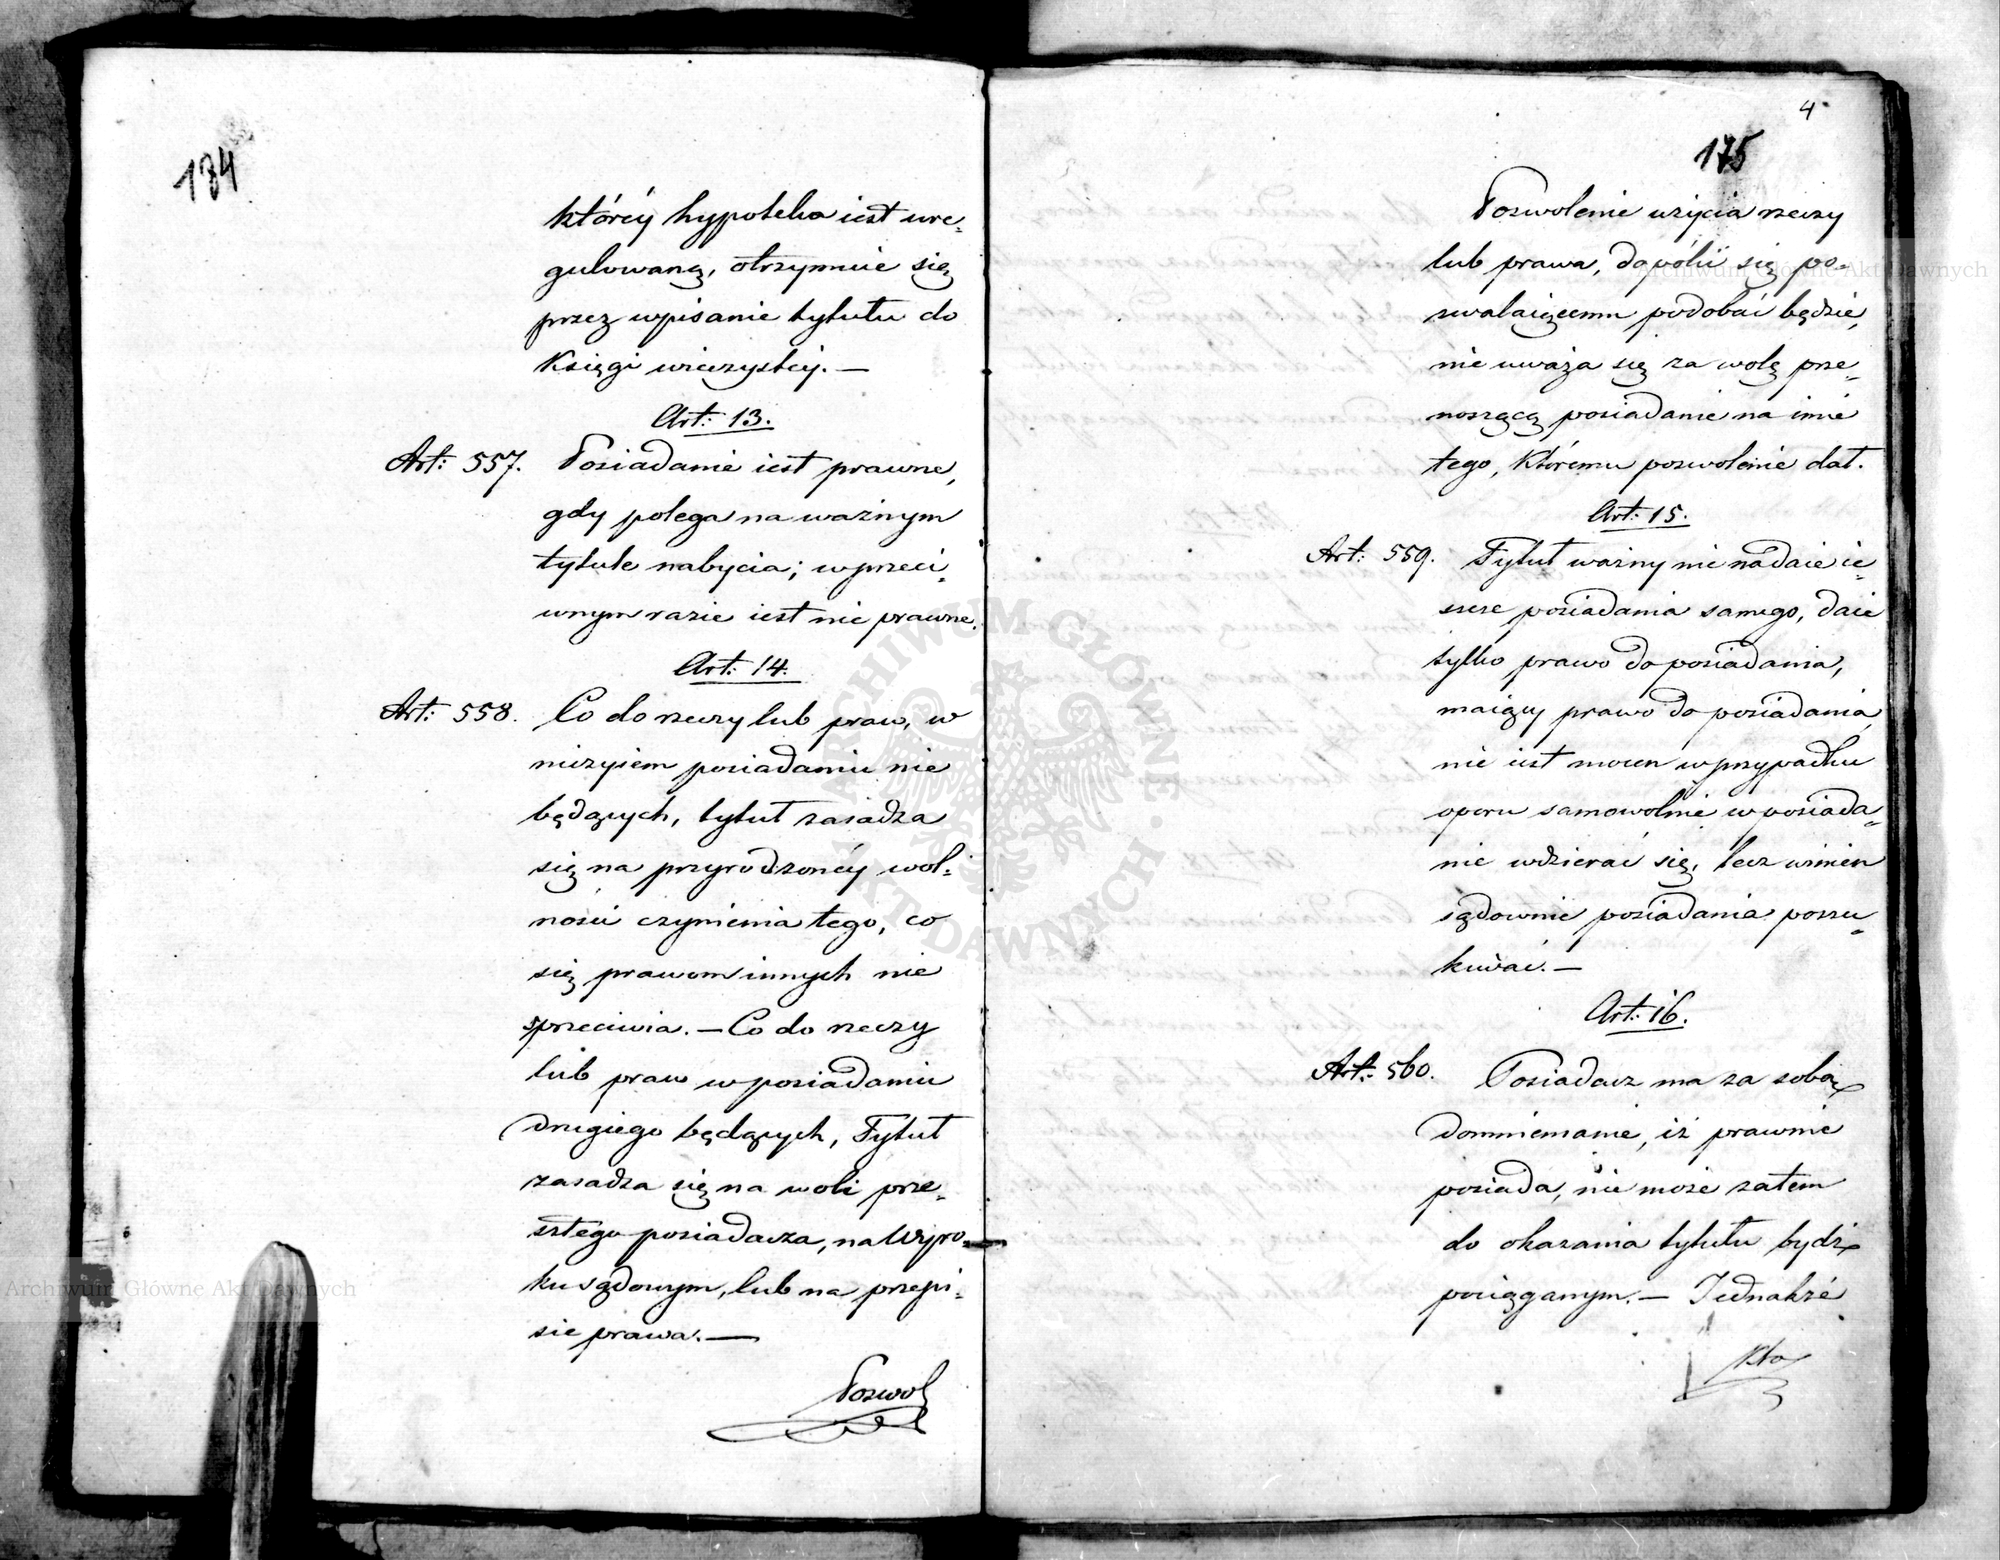 134
któréy hypoteka iest ure=
gulowaną, otrzymuie się
przez wpisanie tytułu do
Księgi wieczystéy. —
Art: 13.
Art: 557. Posiadanie iest prawne,
gdy polega na ważnym
tytule nabycia; w przeci=
wnym razie iest nie prawne.
Art: 14.
Art: 558. Co do rzeczy lub praw, w
niczyiem posiadaniu nie
będących, tytuł zasadza
się na przyrodzonéy wol=
ności czynienia tego, co
się prawom innych nie
sprzeciwia. — Co do rzeczy
lub praw w posiadaniu
drugiego będących, Tytuł
zasadza się na woli prze=
szłego posiadacza, na Wyro=
ku sądowym, lub na przepi=
sie prawa. —
Pozwol
4
175
Pozwolenie użycia rzeczy
lub prawa, dopóki się po=
zwalaiącemu podobać będzie,
nie uważa się za wolę prze=
noszącą posiadanie na imie
tego, któremu pozwolenie dał.
Art: 15.
Art: 559. Tytuł ważny nie nadaie ie=
szcze posiadania samego, daie
tylko prawo do posiadania,
maiący prawo do posiadania
nie iest mocen w przypadku
oporu samowolnie w posiada=
nie wdzierać się, lecz winien
sądownie posiadania poszu=
kiwać. —
Art: 16.
Art: 560. Posiadacz ma za sobą
domniemanie, iż prawnie
posiada, nie może zatem
do okazania tytułu bydź
pociąganym. — Jednakże
Kto
Archiwum Główne Akt Dawnych
Archiwum Główne Akt Dawnych
ARCHIWUM GŁÓWNE AKT DAWNYCH